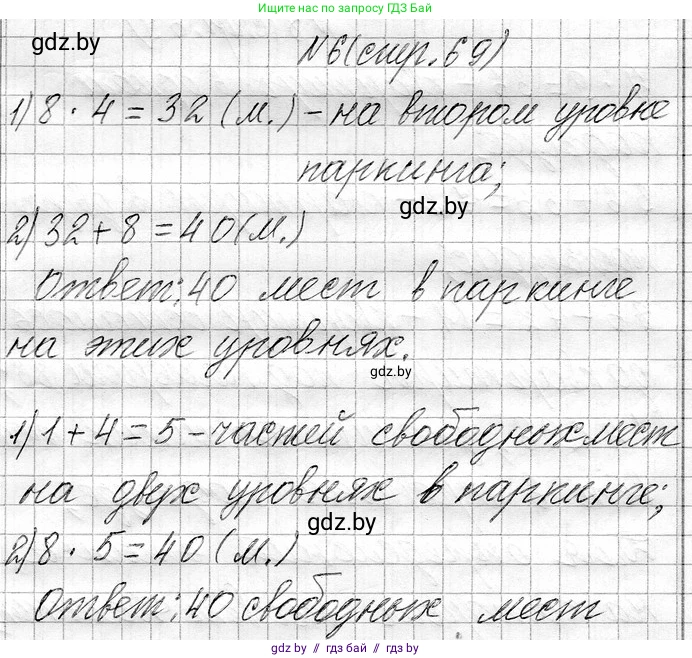 Ищите нас по запросу ГДЗ Бай
gdz.by
№6(стр.69)
1) 8 · 4 = 32 (м.) - на втором уровне
паркинга;
gdz.by
2) 32 + 8 = 40 (м.)
Ответ: 40 мест в паркинге
на этих уровнях.
gdz.by
1) 1 + 4 = 5 - частей свободных мест
на двух уровнях в паркинге;
gdz.by
2) 8 · 5 = 40 (м.)
Ответ: 40 свободных мест
gdz.by // гдз.бай // gdz.by